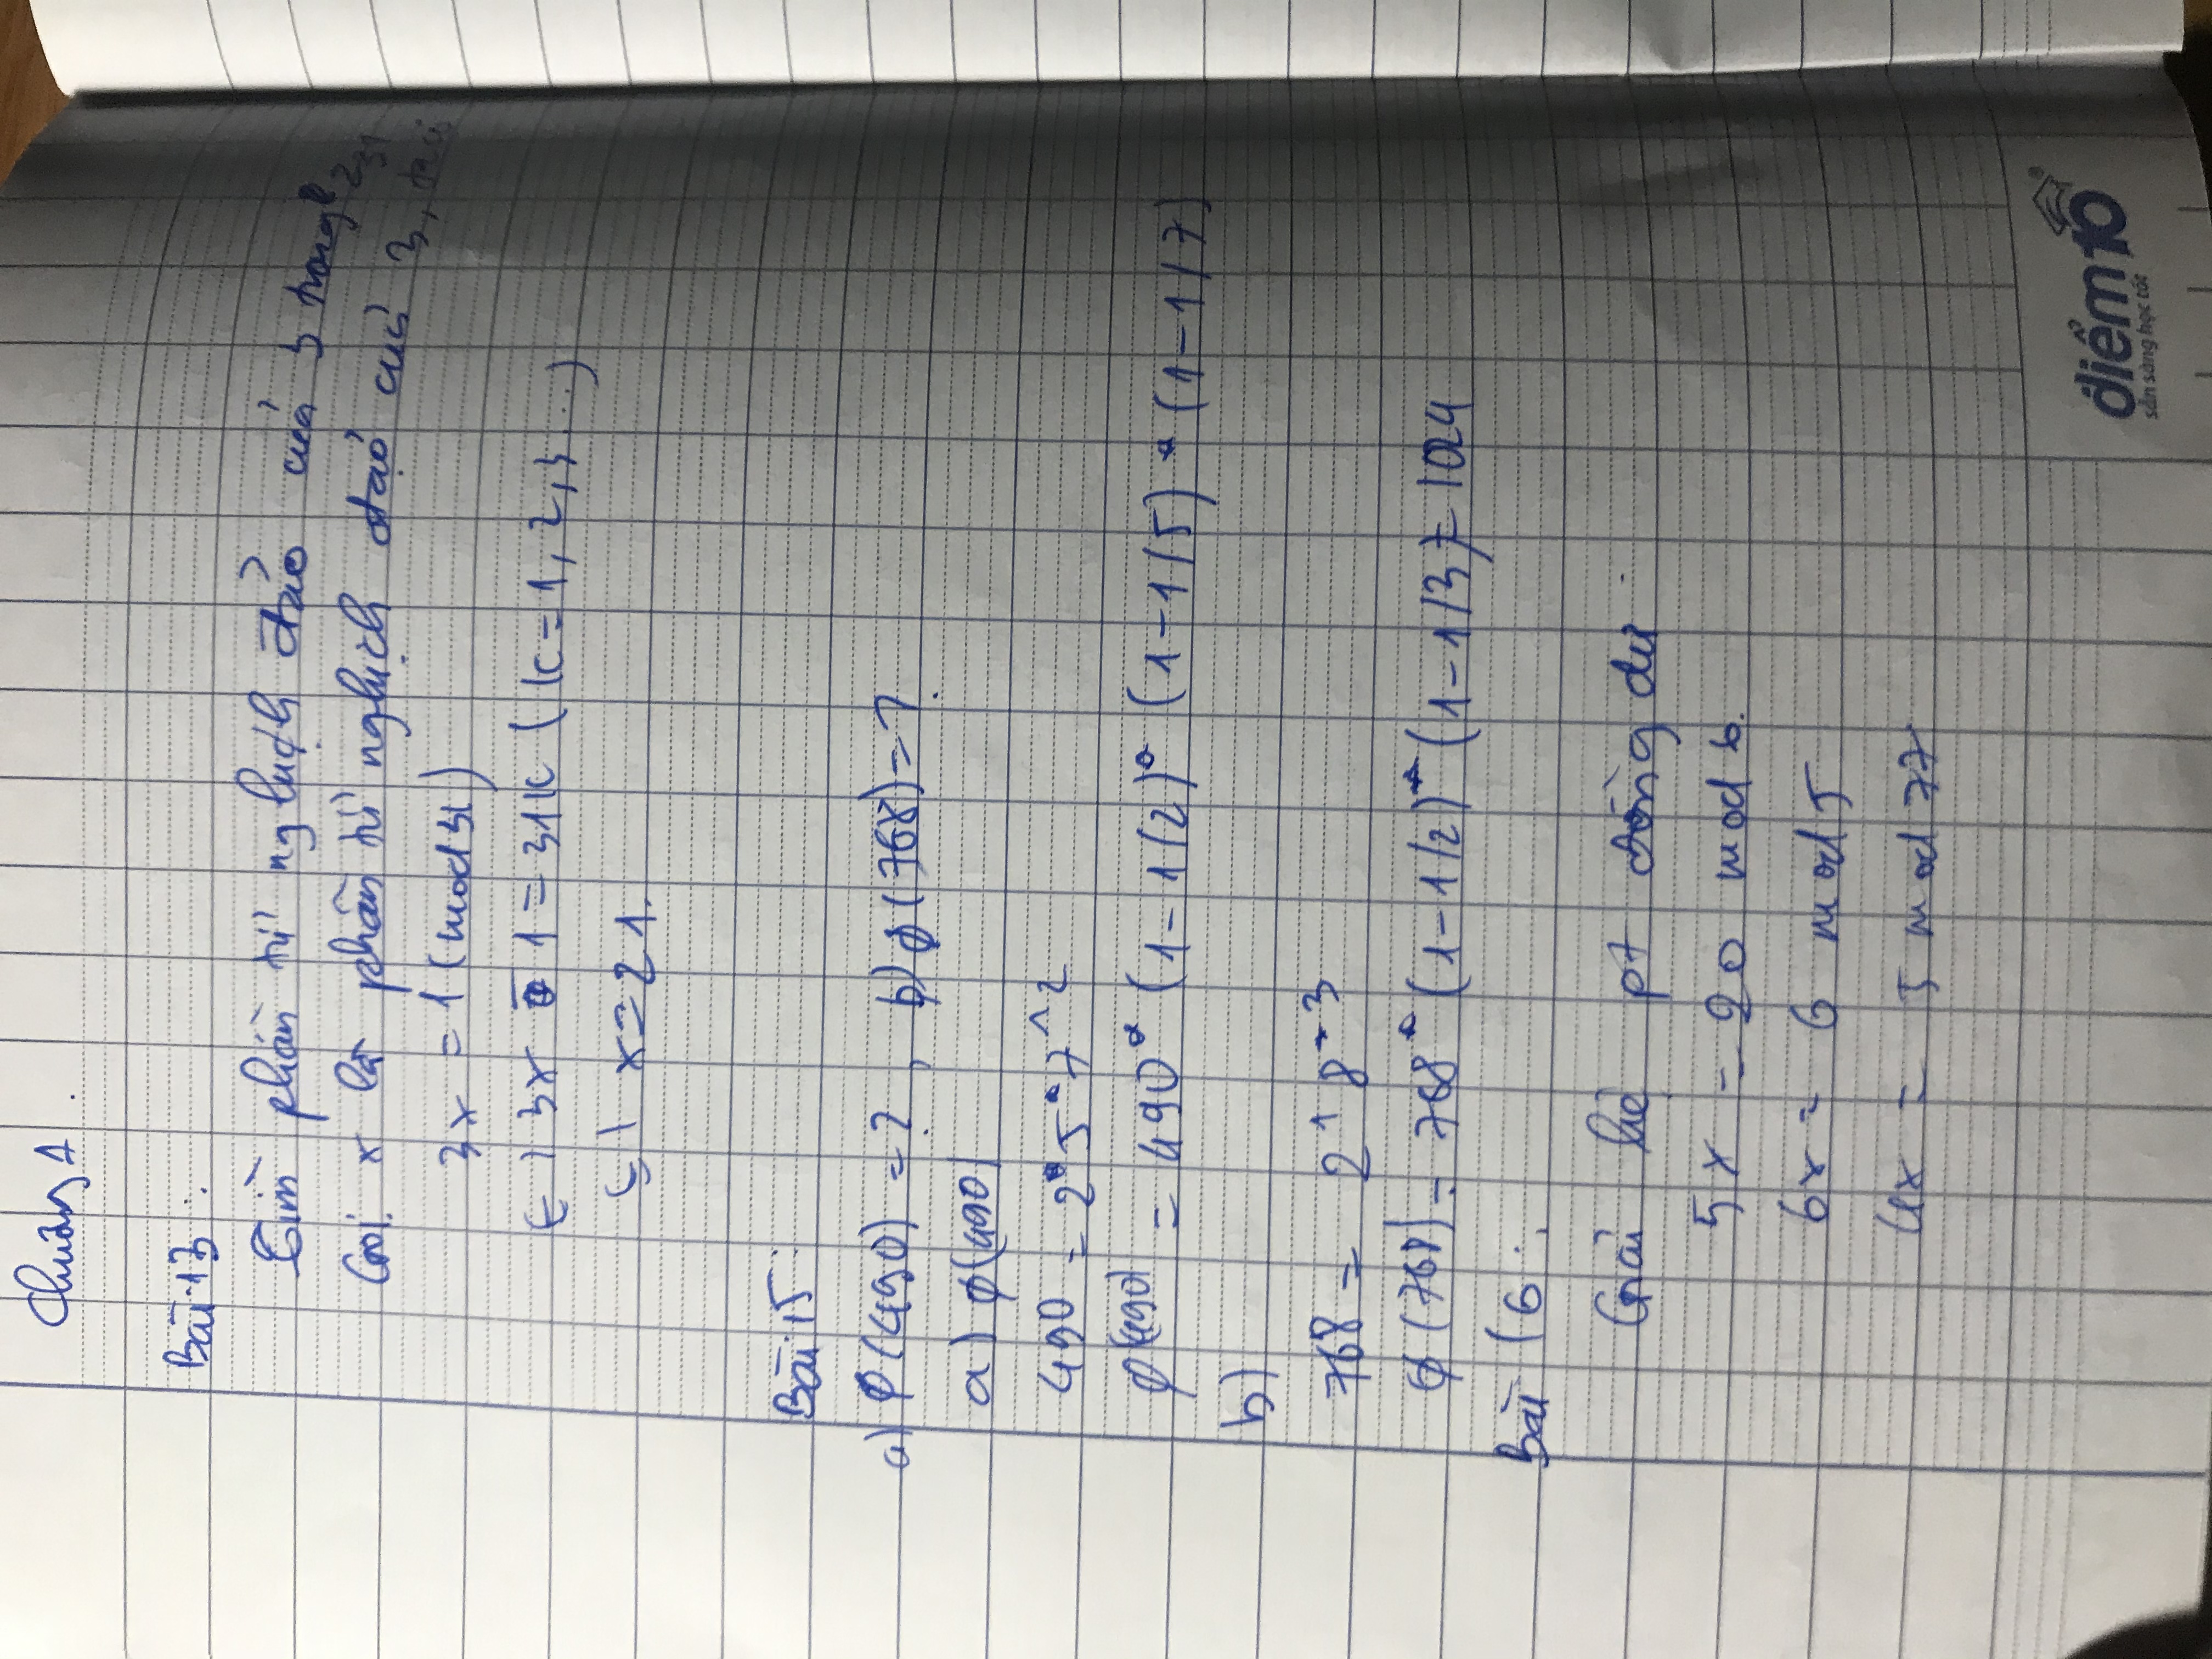 Chương 1.
Bài 13:
Tìm phần tử nghịch đảo của 3 trong Z31
Gọi x là phần tử nghịch đảo của 3, ta có
3x = 1 (mod 31)
<=> 3x - 1 = 31k (k = 1, 2, 3...)
<=> x = 21.
Bài 15:
a) φ(490) = ?, b) φ(768) = ?
a) φ(490)
490 = 2*5*7^2
φ(490) = 490* (1-1/2)* (1-1/5) * (1-1/7)
b)
768 = 2^8*3
φ(768) = 768* (1-1/2)* (1-1/3) = 1024
Bài 16:
Giải hệ pt đồng dư
5x = 20 mod 6.
6x = 6 mod 5
4x = 5 mod 77
điểm10
sẵn sàng học tốt